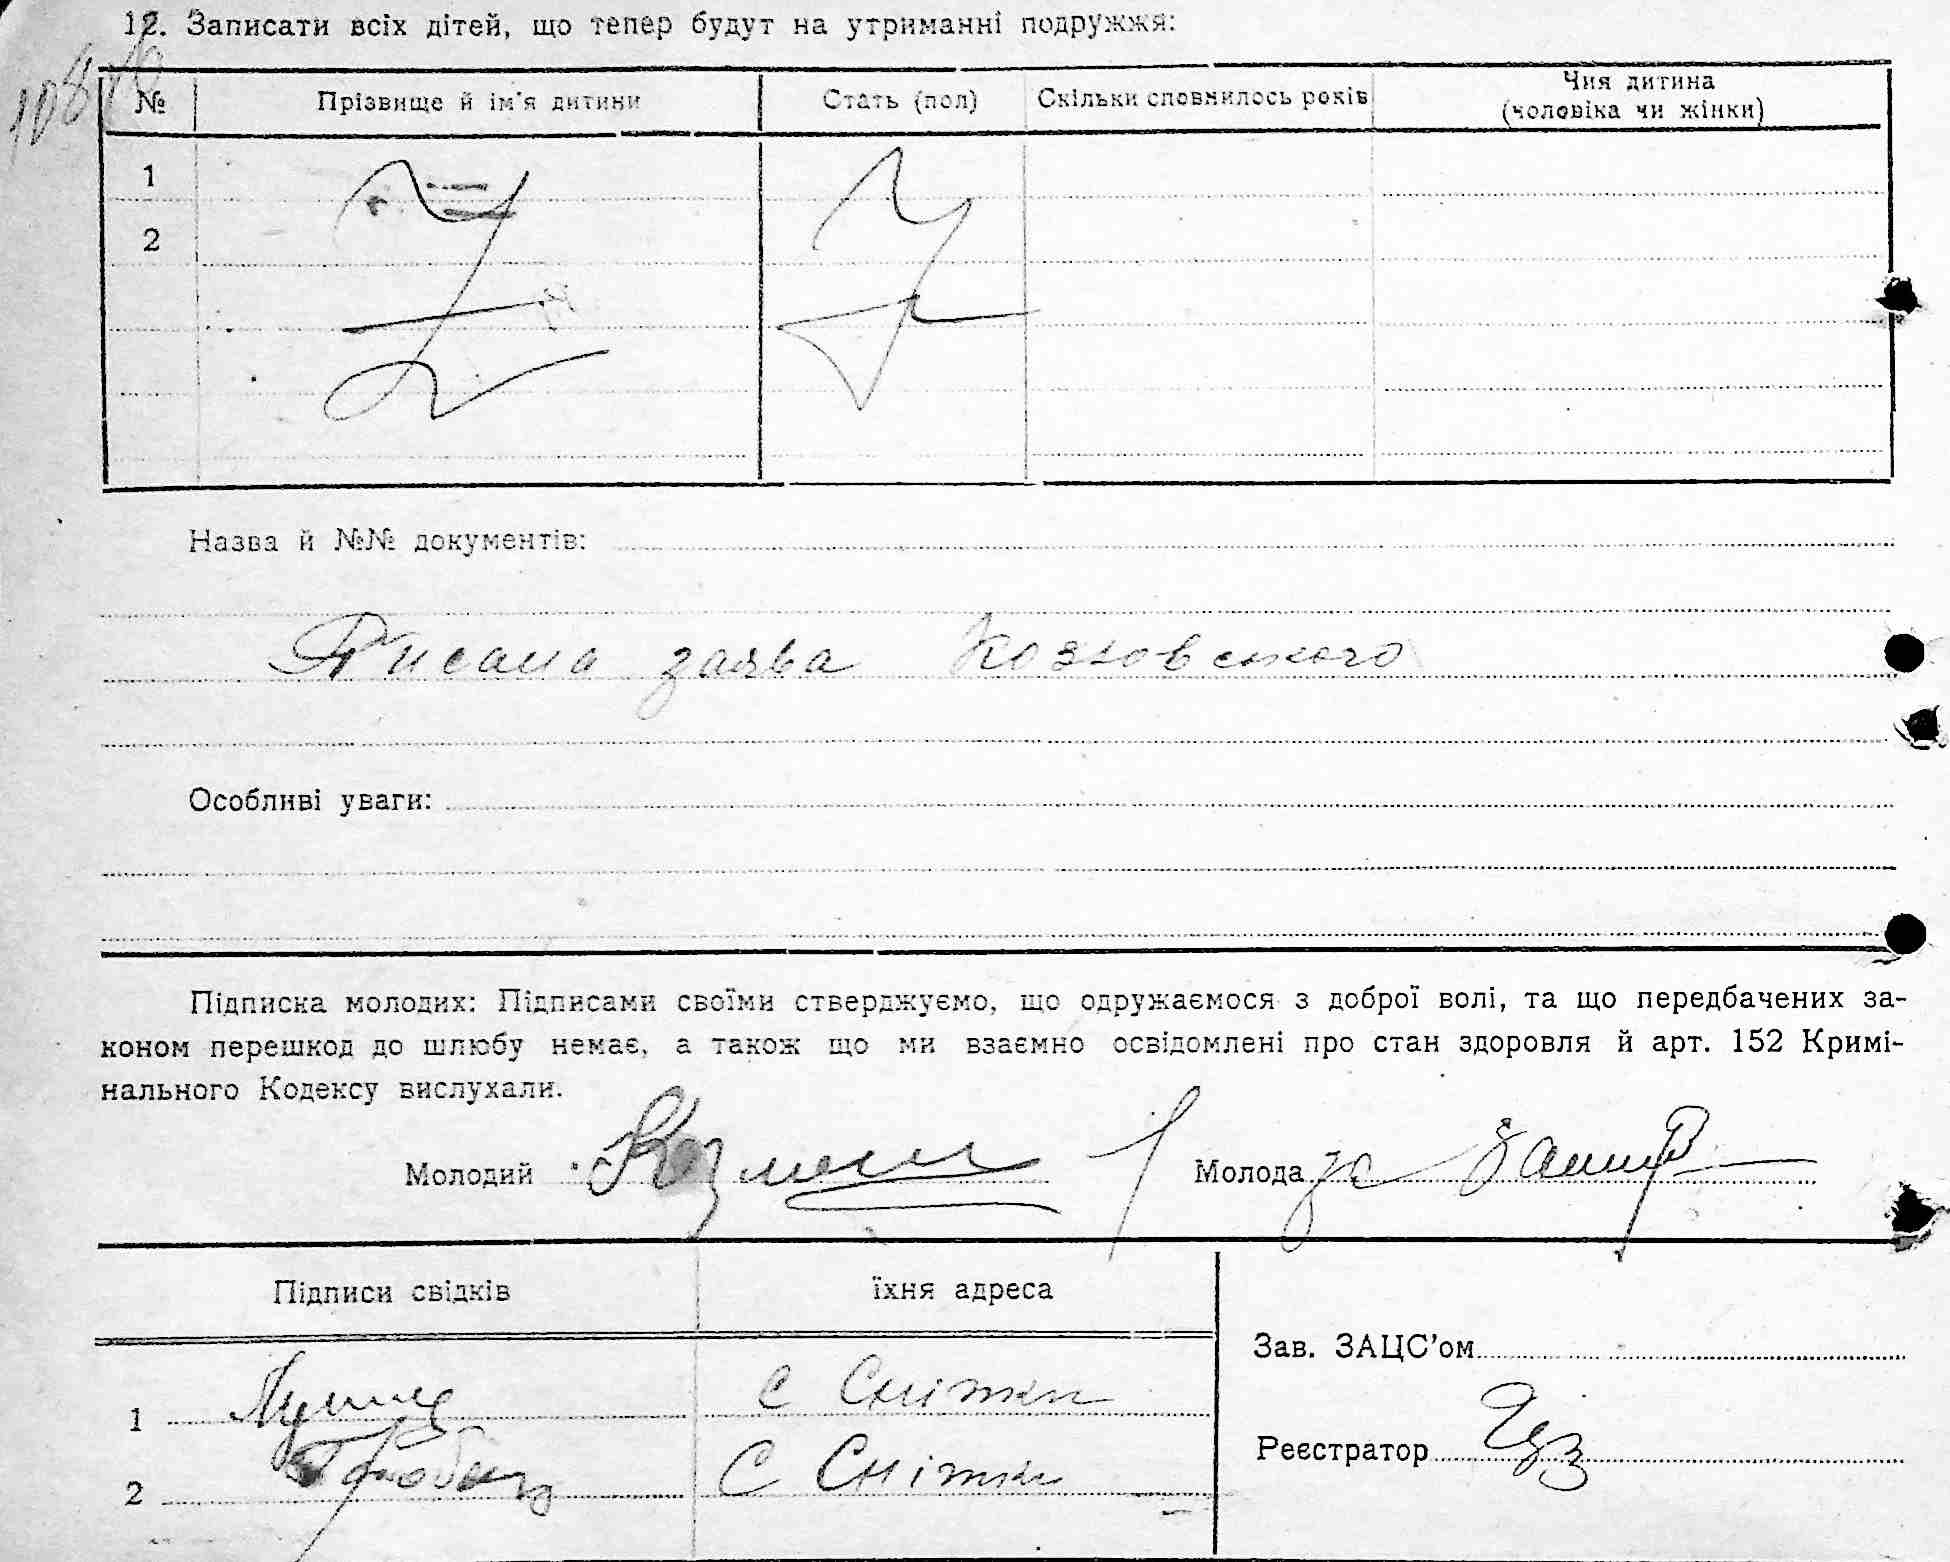 12. Записати всіх дітей, що тепер будут на утриманні подружжя:
№ Прізвище й ім'я дитини Стать (пол) Скільки сповнилось років Чия дитина
(чоловіка чи жінки)
1
2
Назва й №№ документів:
Писана заява Козловського
Особливі уваги:
Підписка молодих: Підписами своїми стверджуємо, що одружаємося з доброї волі, та що передбачених за-
коном перешкод до шлюбу немає, а також що ми взаємно освідомлені про стан здоровля й арт. 152 Кримі-
нального Кодексу вислухали.
Молодий Молода за
Підписи свідків їхня адреса
Зав. ЗАЦС'ом
1 с Сніжки
Реєстратор
2 С Сніжки